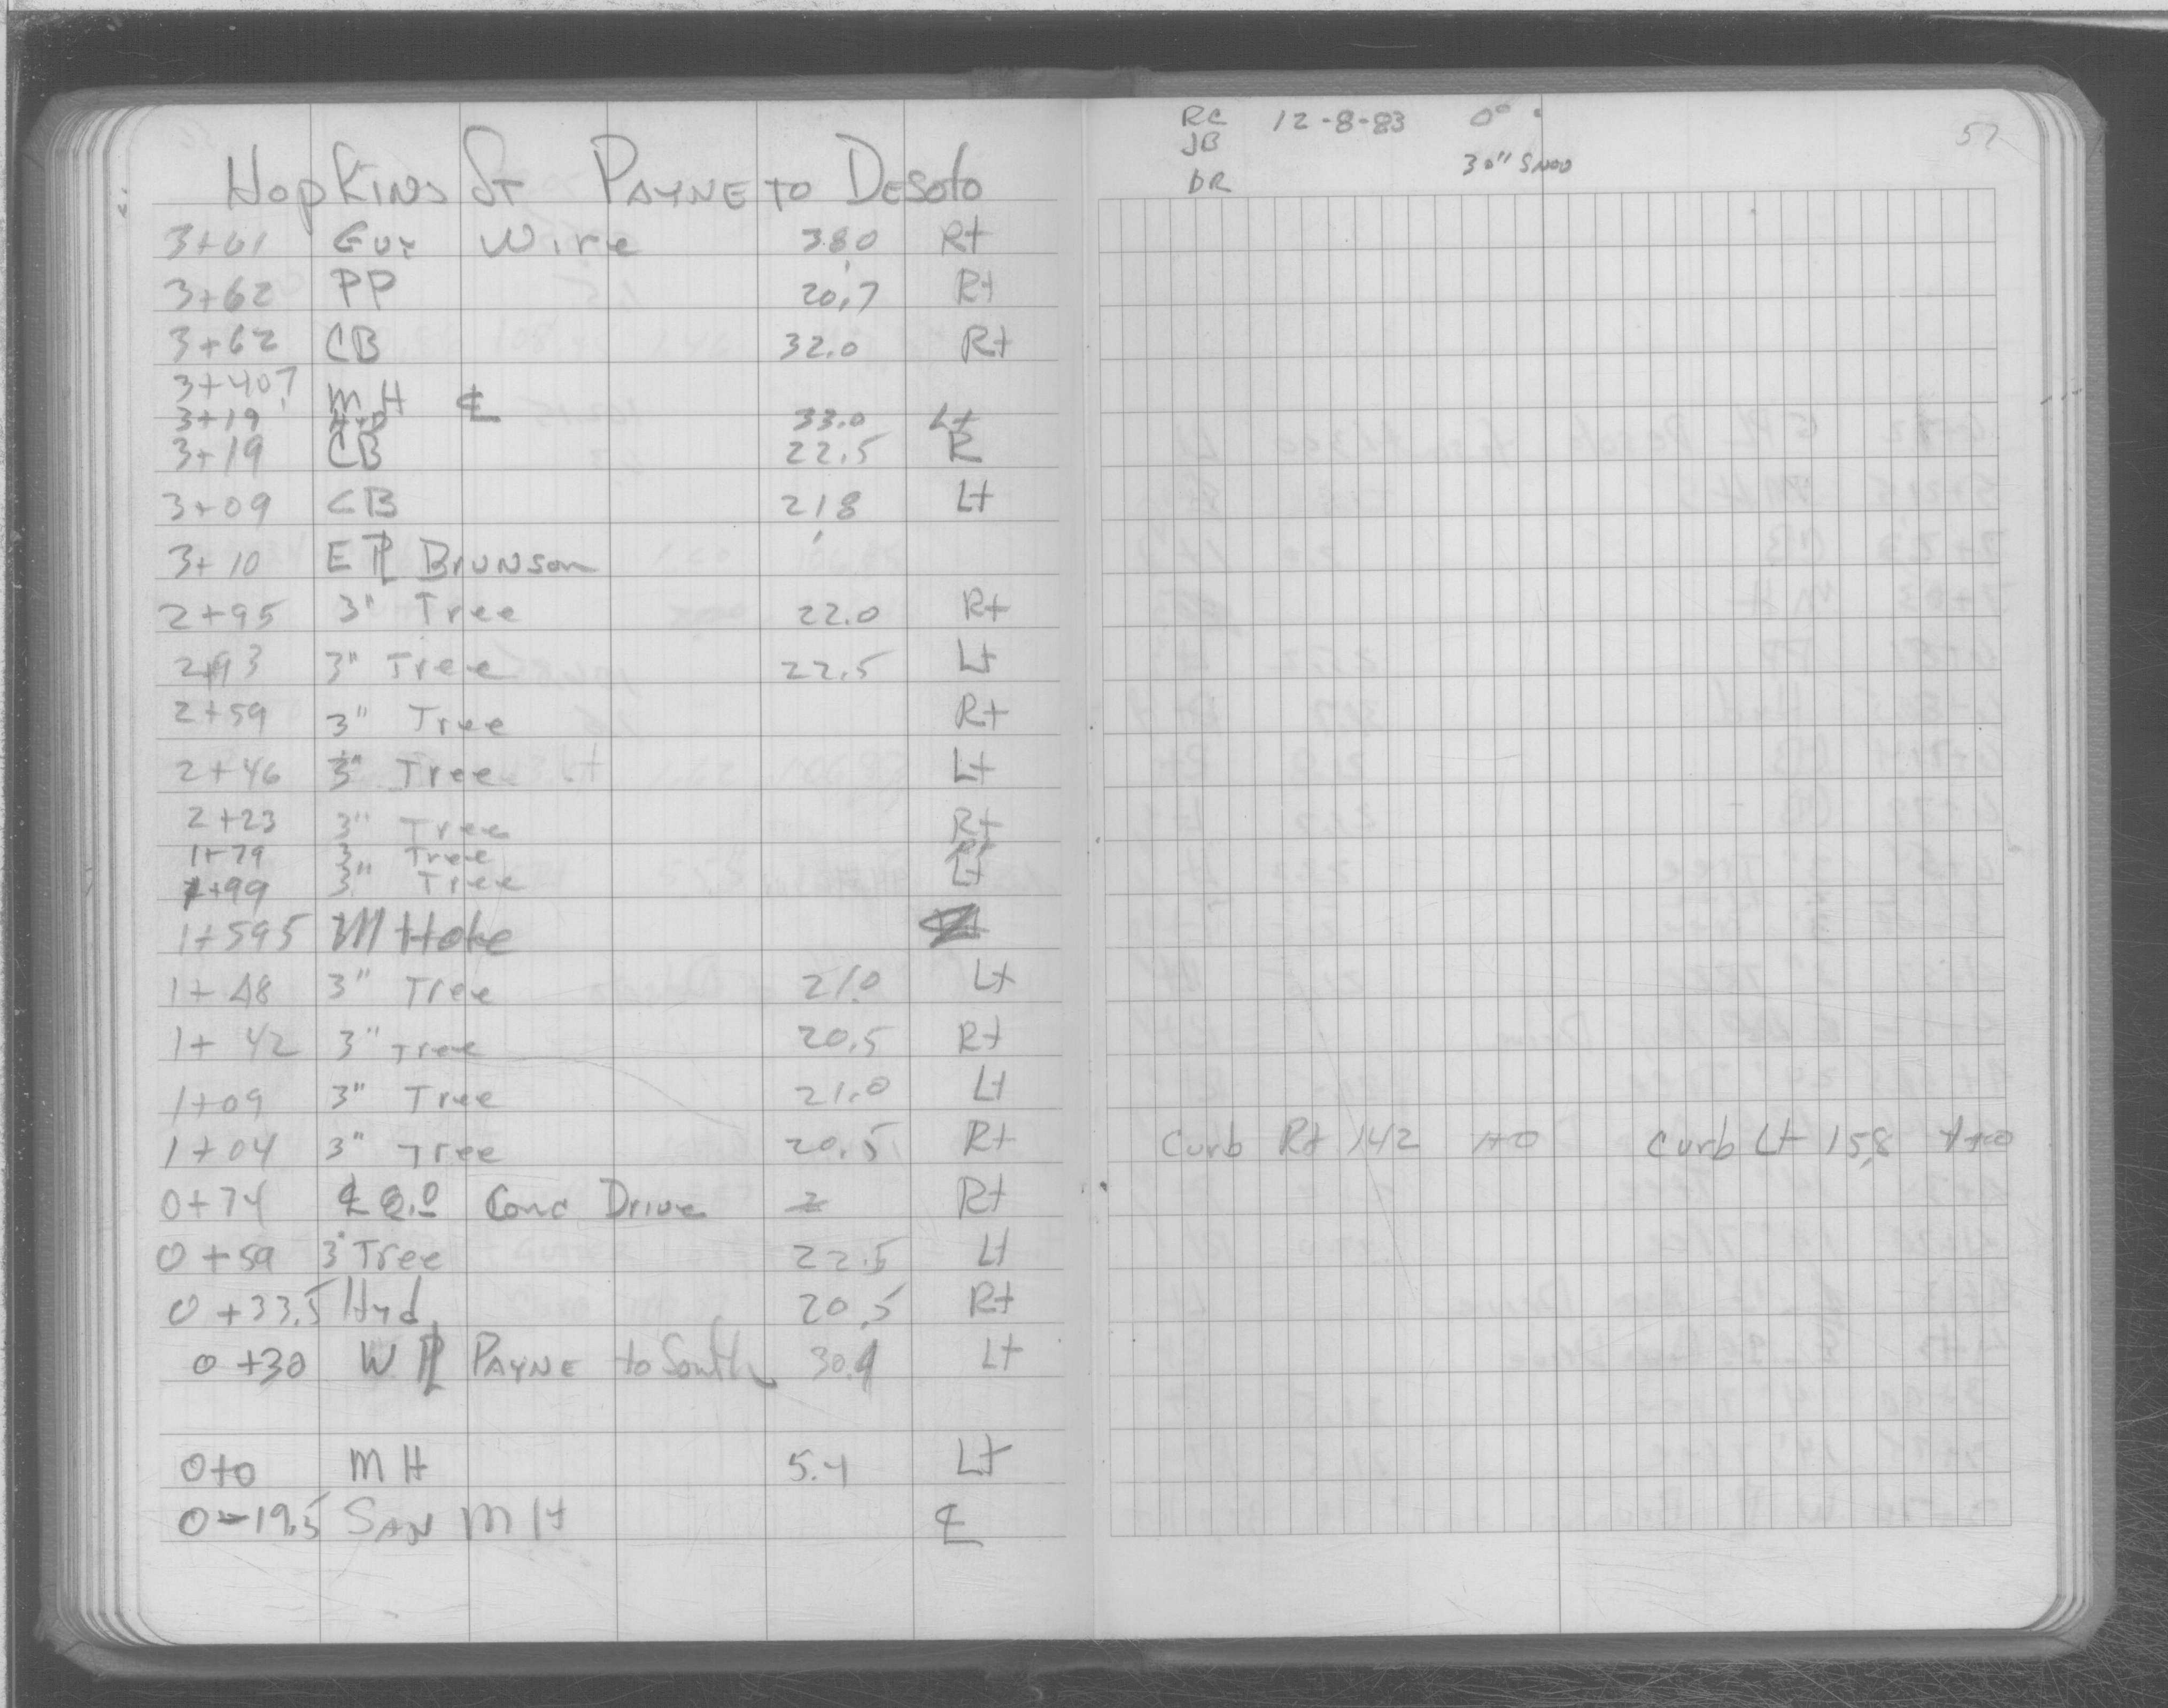 Hopkins St Payne to Desoto
3+61 Guy Wire 38.0 Rt
3+62 PP 20.7 Rt
3+62 CB 32.0 Rt
3+40.7 MH ℄
3+19 Hyd 33.0 Lt
3+19 CB 22.5 R
3+09 CB 21.8 Lt
3+10 E ⅊ Brunson
2+95 3" Tree 22.0 Rt
2+93 3" Tree 22.5 Lt
2+59 3" Tree Rt
2+46 3" Tree Lt
2+23 3" Tree Rt
1+79 3 Tree Rt
1+99 3" Tree Lt
1+59.5 M Hole
1+48 3" Tree 21.0 Lt
1+42 3" Tree 20.5 Rt
1+09 3" Tree 21.0 Lt
1+04 3" Tree 20.5 Rt
0+74 ℄ 8.0 Conc Drive Rt
0+59 3" Tree 22.5 Lt
0+33.5 Hyd 20.5 Rt
0+30 W. ⅊ Payne to South 30.9 Lt
0+0 MH 5.4 Lt
0-19.5 San MH ℄
RC 12-8-83 0°
JB
30" Snow
DR
57
Curb Rt 14.2 1+0 Curb Lt 15.8 1+0